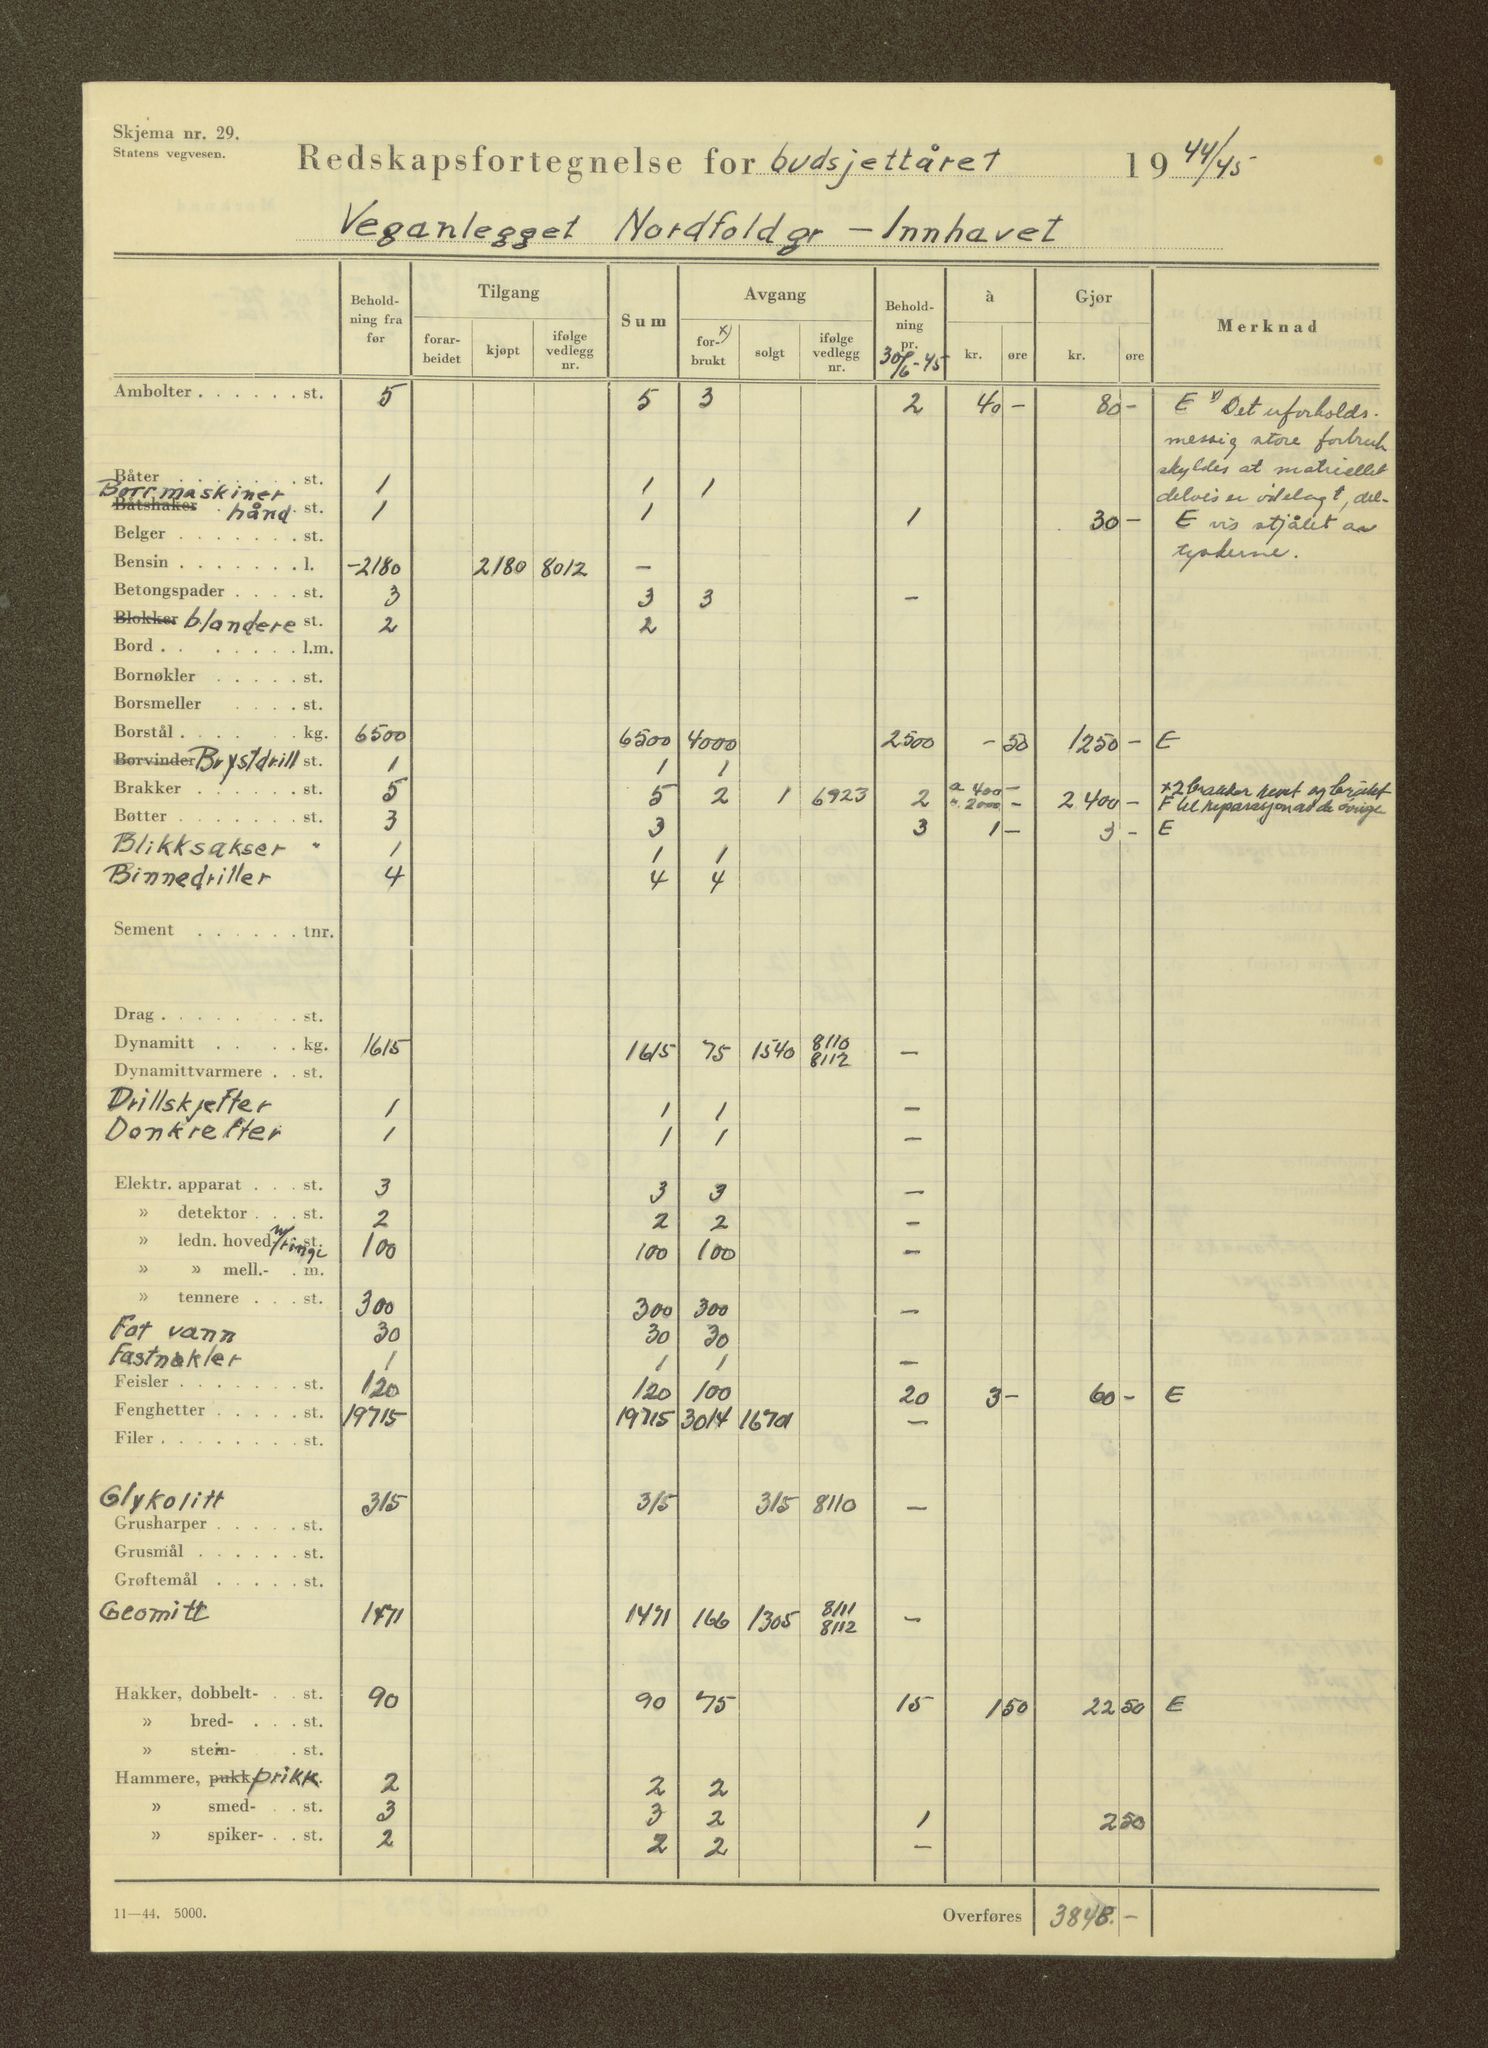 Skjema nr. 29.
Statens vegvesen.
Redskapsfortegnelse for budsjettåret 19 44/45
Veganlegget Nordfoldgr — Innhavet
Behold-ning fra før | Tilgang: forar-beidet | kjøpt | ifølge vedlegg nr. | Sum | Avgang: for-brukt x) | solgt | ifølge vedlegg nr. | Behold-ning pr. 30/6-45 | à kr. | øre | Gjør kr. | øre | Merknad
Ambolter . . . . . . st. 5 5 3 2 40 — 80 — E x) Det uforholds-
messig store forbruk
skyldes at matriellet
Båter . . . . . . . st. 1 1 1 delvis er ödelagt, del-
Båtshaker Borrmaskiner hånd st. 1 1 1 30 — E vis stjålet av
Belger . . . . . . . st. tyskerne.
Bensin . . . . . . . l. -2180 2180 8012 —
Betongspader . . . . st. 3 3 3 —
Blokker blandere st. 2 2
Bord . . . . . . . l.m.
Bornøkler . . . . . st.
Borsmeller . . . . st.
Borstål . . . . . kg. 6500 6500 4000 2500 — 50 1250 — E
Borvinder Brystdrill st. 1 1 1
Brakker . . . . . . st. 5 5 2 1 6923 2 a 400 — " 2000 — 2400 — x 2 brakker revet og brukt
F til reparasjon av de övrige
Bøtter . . . . . . . st. 3 3 3 1 — 3 — E
Blikksakser " 1 1 1
Binnedriller 4 4 4
Sement . . . . . . tnr.
Drag . . . . . . . st.
Dynamitt . . . . kg. 1615 1615 75 1540 8110 8112 —
Dynamittvarmere . . st.
Drillskjefter 1 1 1 —
Donkrefter 1 1 1 —
Elektr. apparat . . . st. 3 3 3 —
» detektor . . . st. 2 2 2 —
» ledn. hoved- m/ringe st. 100 100 100 —
» » mell.- . m.
» tennere . . . st. 300 300 300 —
Fat vann 30 30 30
Fastnøkler 1 1 1 —
Feisler . . . . . . st. 120 120 100 20 3 — 60 — E
Fenghetter . . . . . st. 19715 19715 3014 16701 —
Filer . . . . . . . . st.
Glykolitt 315 315 315 8110 —
Grusharper . . . . . st.
Grusmål . . . . . . st.
Grøftemål . . . . . st.
Geomitt 1471 1471 166 1305 8111 8112 —
Hakker, dobbelt- . . st. 90 90 75 15 1 50 22 50 E
» bred- . . . st.
» stein- . st.
Hammere, pukk prikk. 2 2 2
» smed- . . st. 3 3 2 1 2 50
» spiker- . . st. 2 2 2 —
11—44. 5000. Overføres 3848. —